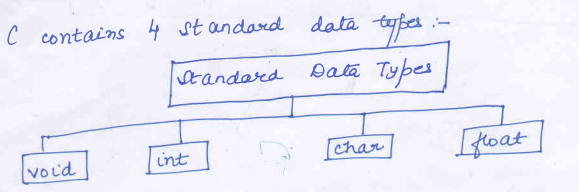 C contains 4 standard data types :-
Standard Data Types
void int char float